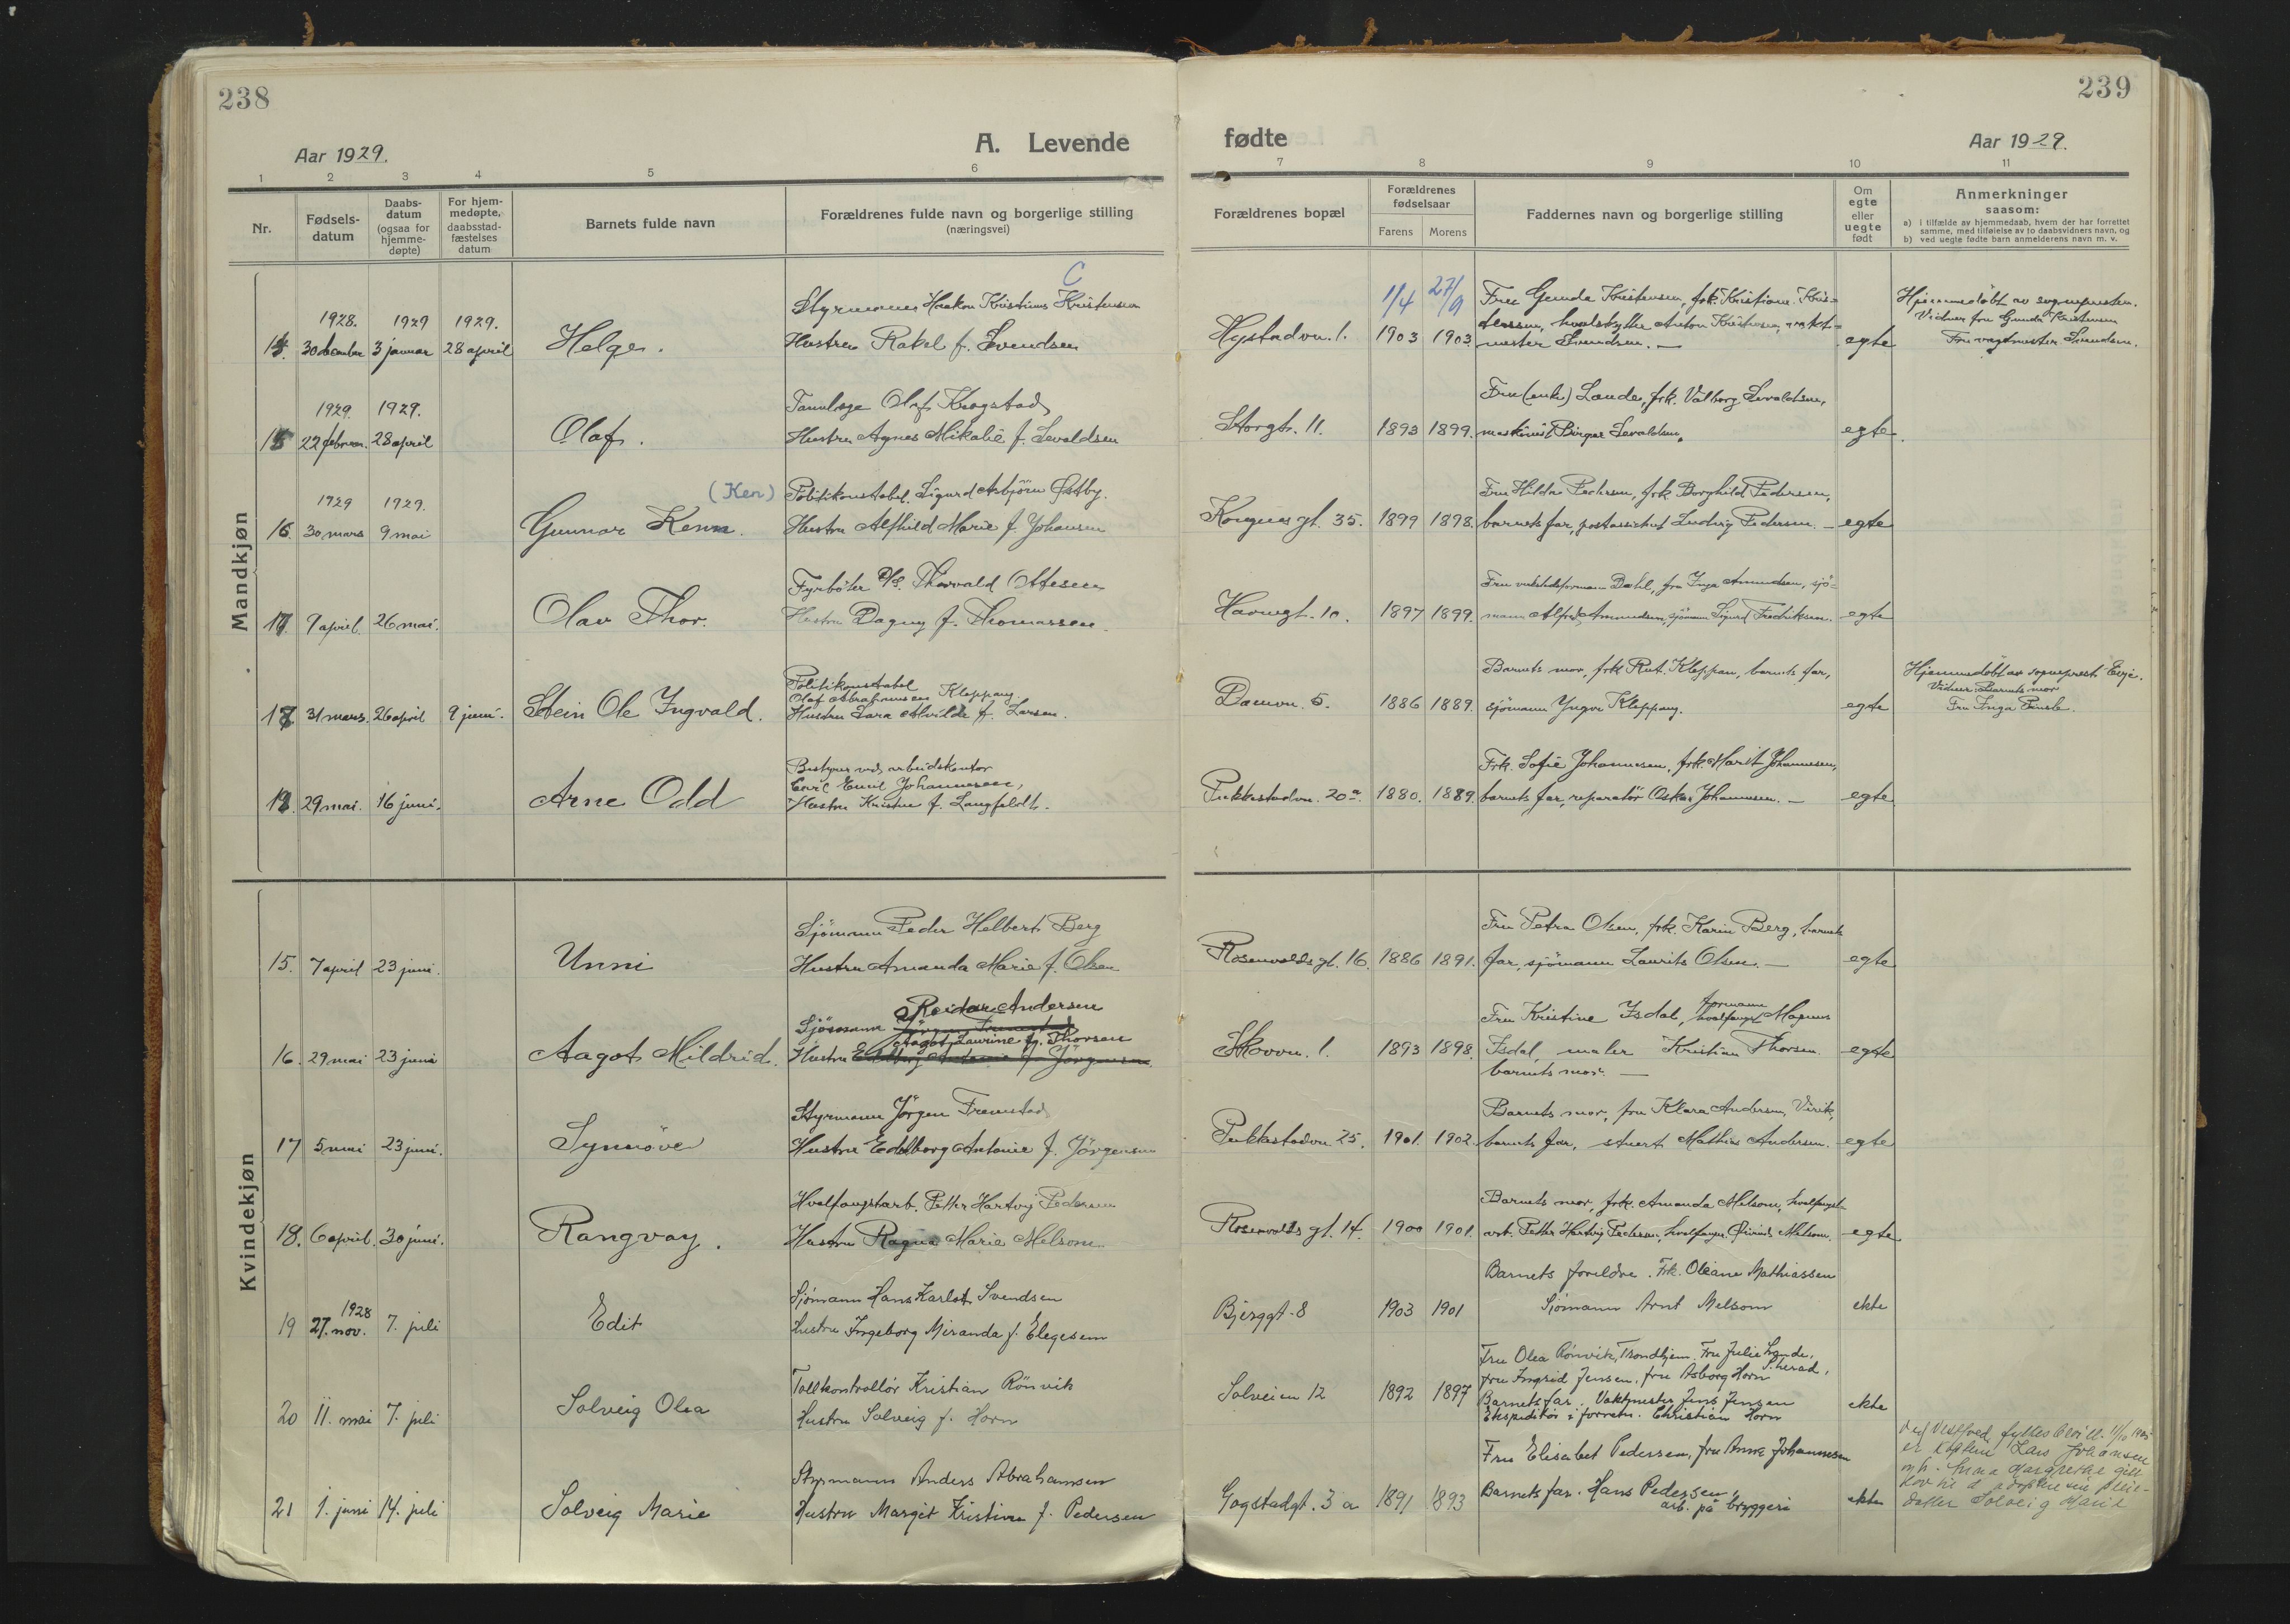 238
Aar 1929.
A. Levende
1 2 3 4 5 6
Nr.
Fødsels-
datum
Daabs-
datum
(ogsaa for
hjemme-
døpte)
For hjem-
medøpte,
daabsstad-
fæstelses
datum
Barnets fulde navn
Forældrenes fulde navn og borgerlige stilling
(næringsvei)
Mandkjøn
C
1928. 1929 1929. Styrmann Haakon Kristinus Kristensen
30 december 3 januar 28 april Helge. Hustru Rakel f. Svendsen
1929. 1929. Tannlæge Olaf Krogstad
15 22 februar. 28 april Olaf. Hustru Agnes Mikalie f. Sevaldsen
1929 1929. (Ken) Politikonstabel Sigurd Asbjörn Østby.
16. 30 mars 9 mai Gunnar Kenn. Hustru Alfhild Marie f. Johansen
Fyrböter Thorvald Ottesen
17. 9 april. 26 mai. Olav Thor. Hustru Dagny f. Thomassen.
Politikonstabel
Olaf Abrahamsen Kleppang.
31 mars. 26 april 9 juni. Stein Ole Ingvald. Hustru Sara Alvilde f. Larsen.
Bestyrer ved arbeidskontor
Carl Emil Johannesen,
29 mai. 16 juni. Arne Odd Hustru Kristine f. Langfeldt.
Kvindekjøn
Sjömann Peder Helbert Berg
15. 7 april 23 juni. Unni Hustru Amanda Marie f. Olsen
Reidar Andersen
Sjömann Jörgen Fremstad
Aagot Laurine f. Thorsen
16. 29 mai 23 juni Aagot Mildrid. Hustru Edelborg Antonie f. Jörgensen.
Styrmann Jörgen Fremstad
17 5 mai 23 juni. Synnöve Hustru Edelborg Antonie f. Jörgensen
Hvalfangstarb. Petter Hartvig Pedersen
18. 6 april. 30 juni. Rangvay. Hustru Ragna Marie Melsom
1928 Sjömann Hans Karlot Svendsen
19 27. nov. 7. juli Edit Hustru Ingeborg Miranda f. Elegesem
Tollkontrollör Kristian Rönvik
20 11. mai 7. juli Solveig Olea Hustru Solveig f. Horn
Styrmann Anders Abrahamsen
21 1. juni 14. juli Solveig Marie Hustru Margit Kristine f. Pedersen
239
fødte
Aar 1929.
7 8 9 10 11
Forældrenes bopæl
Forældrenes
fødselsaar
Farens Morens
Faddernes navn og borgerlige stilling
Om
egte
eller
uegte
født
Anmerkninger
saasom:
a) i tilfælde av hjemmedaab, hvem der har forrettet
samme, med tilføielse av to daabsvidners navn, og
b) ved uegte fødte barn anmelderens navn m. v.
1/4 27/9 Fru Gunda Kristensen, frk. Kristiane Kris- Hjemmedöbt av sognepresten.
tensen, hvalskytter Anton Kristensen, Vidner fru Gunda Kristensen
Hystadvn. 1. 1903 1903. mester Svendsen. — egte Fru vagtmester Svendsen.
Fru (enke) Lande, frk. Valborg Sevaldsen,
Storgt. 11. 1893 1899. maskinist Birger Sevaldsen. egte.
Fru Hilda Pedersen, frk. Borghild Pedersen,
Kongens gt. 35. 1899 1898. barnets far, postassistent Ludvig Pedersen. — egte
Fru verkstedsformann Dahl, fru Inga Amundsen, sjö-
Havnegt. 10. 1897 1899. mann Alfred Amundsen, sjömann Sigurd Fredriksen. egte
Barnets mor, frk. Rut Kleppan, barnets far, Hjemmedöbt av sogneprest Evje.
Vidner: Barnets mor
Damvn. 5. 1886 1889. sjömann Yngvar Kleppang. egte Fru Inga
Frk. Sofie Johannesen, frk. Marit Johannesen,
Pukkestadvn. 20a. 1880. 1889. barnets far, reparatör Oskar Johannesen. — egte
Fru Petra Olsen, frk. Karin Berg, barnets
Rosenvolds gt. 16. 1886 1891. far, sjömann Laurits Olsen. — egte
Fru Kristine Isdal, formann hvalfangst Magnus
Skovvn. 1. 1893 1898. Isdal, maler Kristian Thorsen. egte
barnets mor. —
Barnets mor, fru Klara Andersen, Virik,
Pukkestadvn 25. 1901. 1902. barnets far, stuert Mathias Andersen. egte
Barnets mor, frk. Amanda Melsom, hvalfangst-
Rosenvolds gt. 14. 1900 1901. arb. Petter Hartvig Pedersen, hvalfanger Öivind Melsom. egte
Barnets foreldre. Frk. Oleane Mathiassen
Bjerggt. 8 1903 1901 Sjömann Arnt Melsom ekte
Fru Olea Rönvik, Trondhjem. Fru Julie Lande,
fru Ingrid Jensen, fru Asborg Horn S.herad.
Solveien 12 1892 1897 Barnets far. Vaktmester Jens Jensen ekte
Ekspeditör i forretn. Christian Horn
Fru Elisabet Pedersen, fru Anna Johannesen
Gogstadgt. 3a 1891 1893 Barnets far. Hans Pedersen, ekte
arb. på bryggeri
Ved Vestfold fylkes bevill. 11/10
er kaptein Lars Johansen
og h. Anna Margrethe gitt
lov til å adoptere sin pleie-
datter Solveig Marie